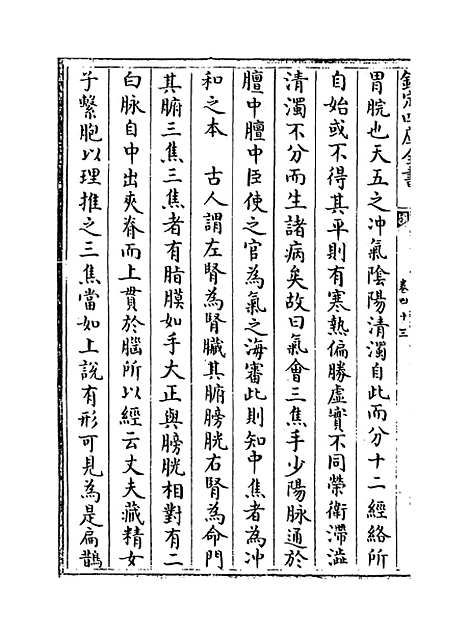 欽定四庫全書
卷四十三
胃脘也天五之冲氣陰陽清濁自此而分十二經絡所
自始或不得其平則有寒熱偏勝虛實不同榮衛滯澁
清濁不分而生諸病矣故曰氣會三焦手少陽脉通於
膻中膻中臣使之官為氣之海審此則知中焦者為冲
和之本 古人謂左腎為腎臟其腑膀胱右腎為命門
其腑三焦三焦者有脂膜如手大正與膀胱相對有二
白脉自中出夾脊而上貫於腦所以經云丈夫藏精女
子繫胞以理推之三焦當如上說有形可見為是扁鵲